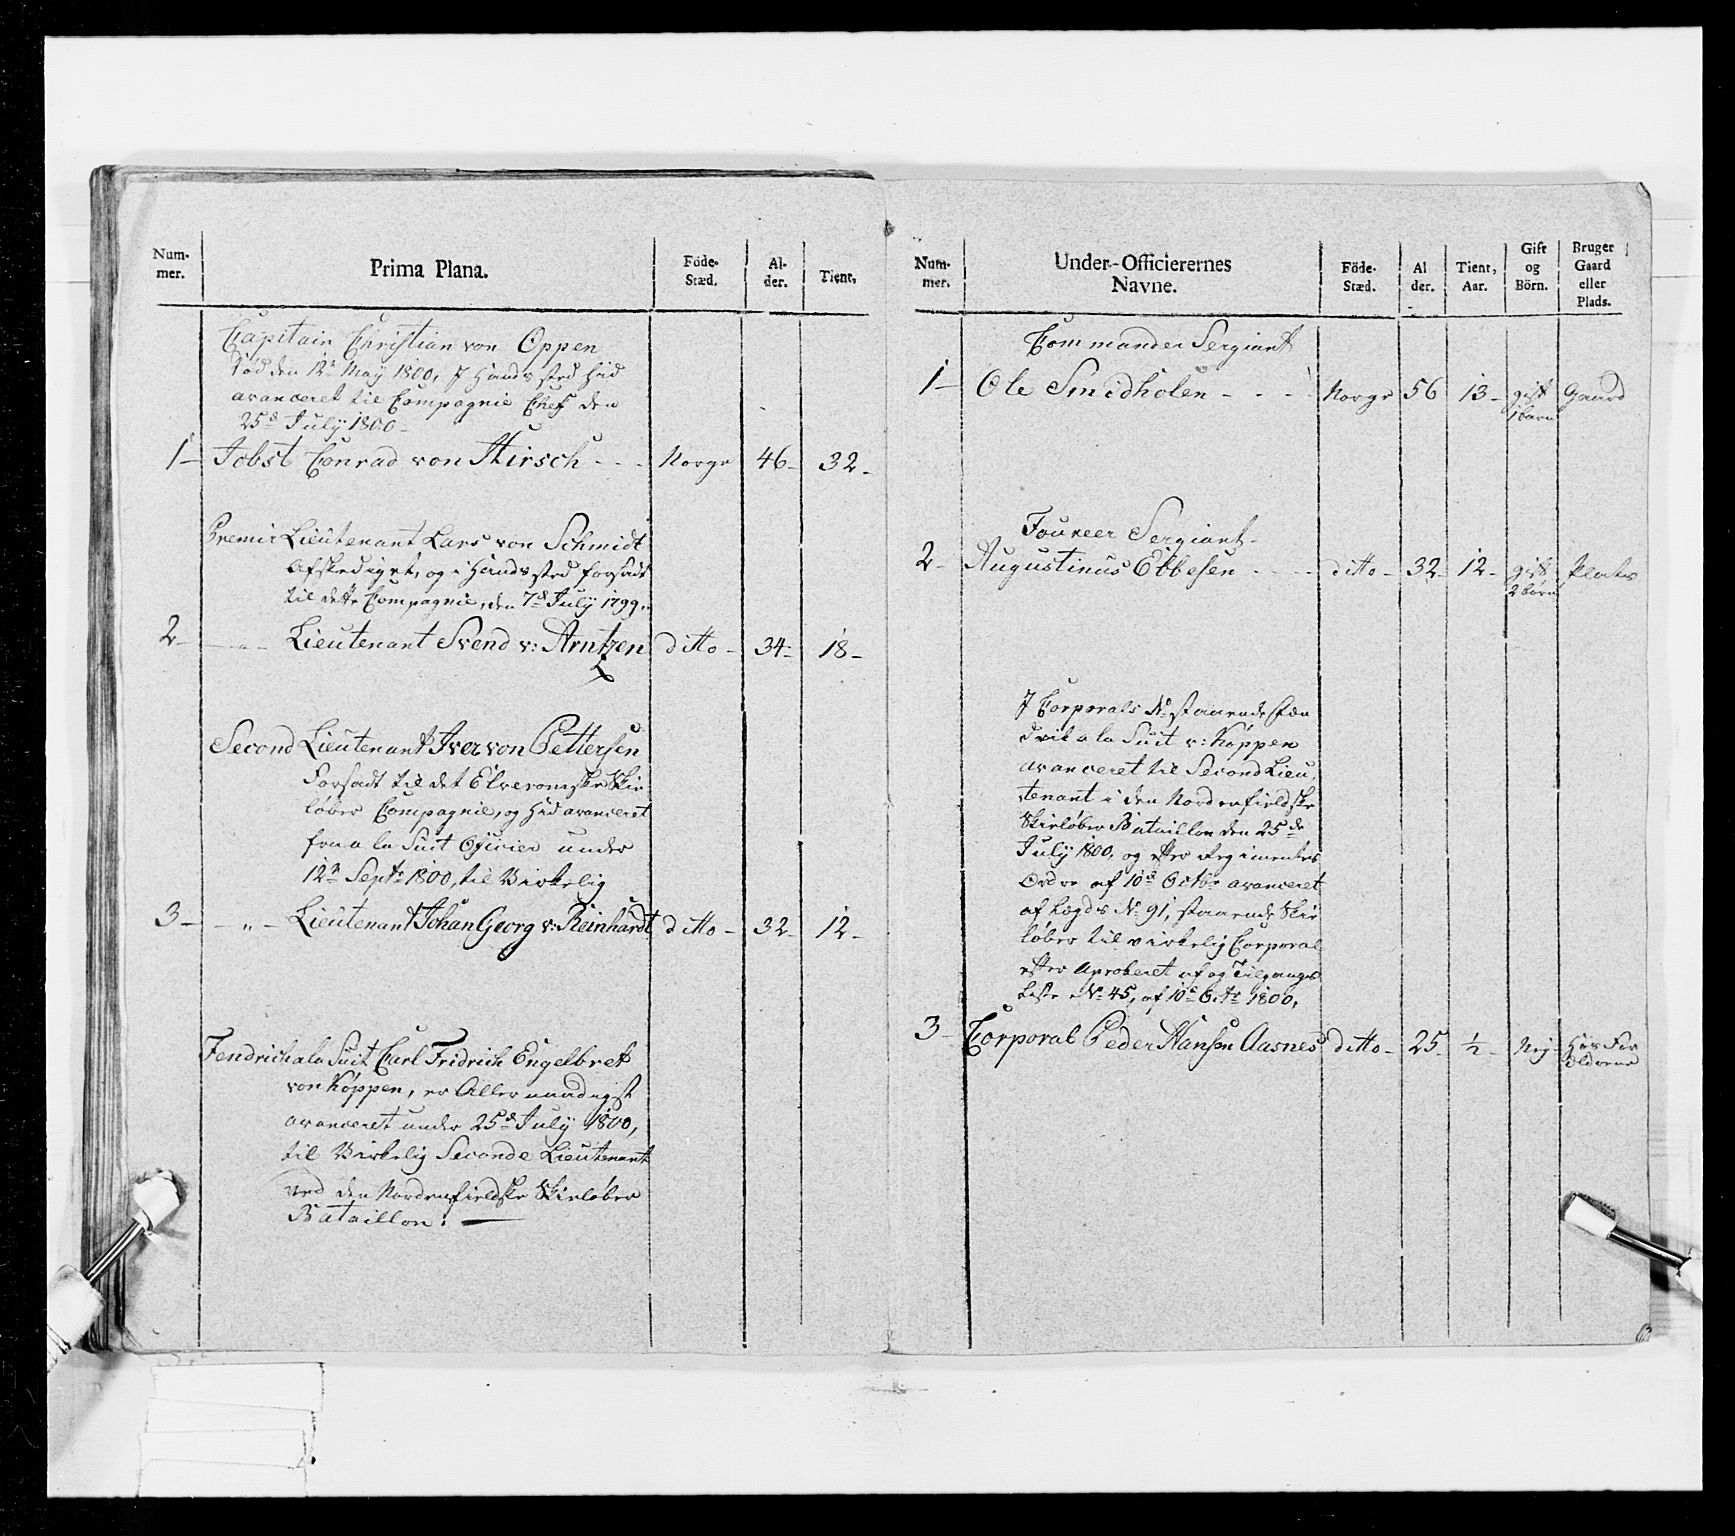 Num-
mer.
Prima Plana.
Föde-
Stæd.
Al-
der.
Tient.
Capitain Christian von Oppen
død den 12te May 1800, I Hands sted hid
avanceret til Compagnie Chef den
25d July 1800 -
1 - Jobst Conrad von Hirsch - - - Norge 46 - 32 -
Premir Lieutenant Lars von Schmidt
Afskediget, og i Hands sted forsadt
til dette Compagnie, den 7d July 1799.
2 - - " - Lieutenant Svend v: Arntzen ditto - 34 - 18 -
Second Lieutenant Iver von Pettersen
Forsadt til det Elveromske Skie
løber Compagnie, og hid avanceret
fra a la Suit Officier under
12te Septr 1800, til Virkelig
3 - - " - Lieutenant Johan Georg v: Reinhardt ditto - 32 - 12 -
Fendrich a la Suit Carl Fridrich Engelbret
von Køppen, er Allernaadigst
avanceret under 25d July 1800,
til Virkelig Seconde Lieutenant
ved den Nordenfieldske Skieløber
Bataillon. —
Num-
mer.
Under-Officierernes
Navne.
Föde-
Stæd.
Al
der.
Tient,
Aar.
Gift
og
Börn.
Bruger
Gaard
eller
Plads.
Commander Sergiant
1 - Ole Smidholen - - - Norge 56 13 - gift Gaard
1 barn
Foureer Sergiant -
2 - Augustinus Ebbesen - - - ditto - 32 - 12 - gift Plads
2 børn
I Corporals No staaende Fæn
drik a la Suit v: Køppen
avanceret til Second Lieu,
tenant i den Nordenfieldske
Skieløber Bataillon den 25de
July 1800, og efter Regimentes
Ordre af 10d Octbr avanceret
af Lægds No 91, staaende Skie
løber til virkelig Corporal
efter Aproberet af og Tilgangs
Liste No 45, af 10d Octr 1800,
3 - Corporal Peder Hansen Aasnes ditto - 25 - ½ - Nej Hos For
ældrene